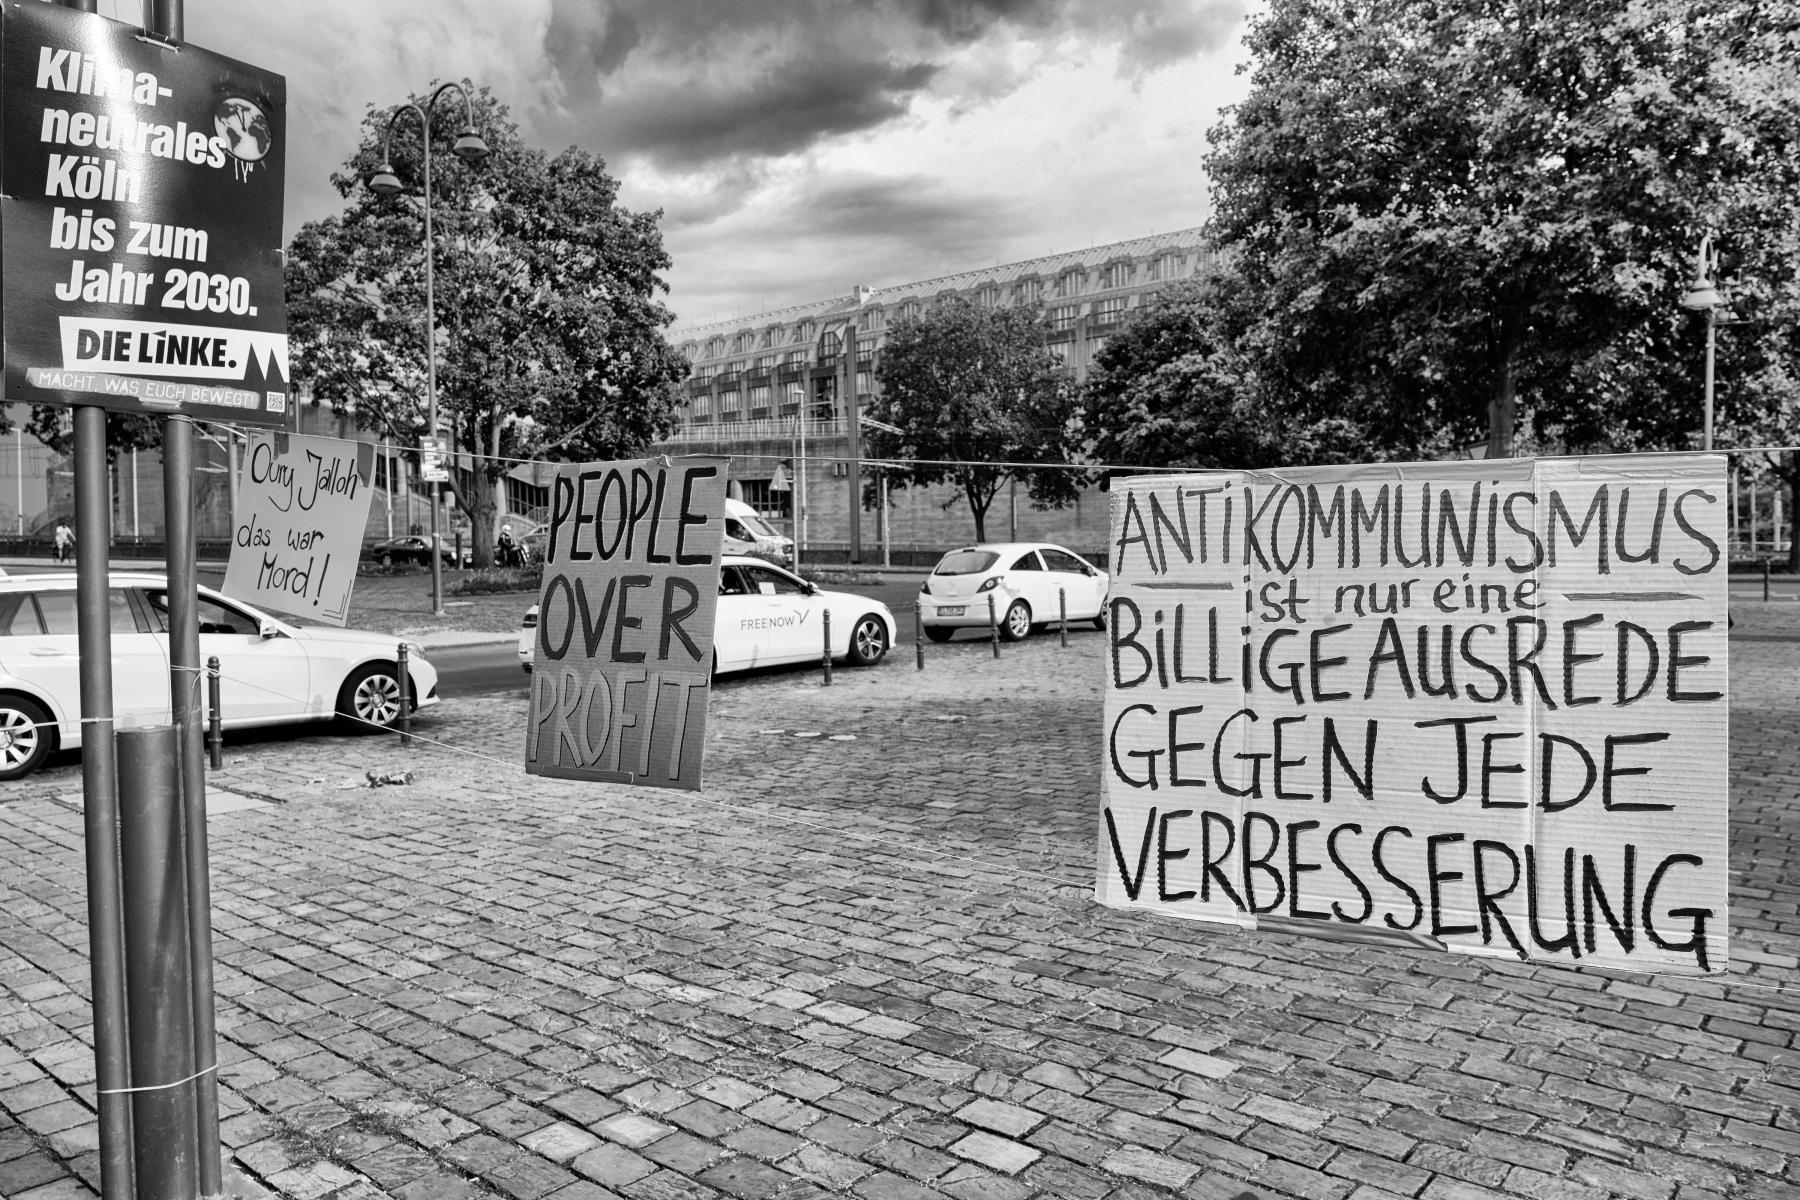 Klima-
neutrales
Köln
bis zum
Jahr 2030.
DIE LINKE.
MACHT, WAS EUCH BEWEGT!
Oury Jalloh
das war
Mord!
PEOPLE
OVER
PROFIT
FREENOW
ANTiKOMMUNiSMUS
ist nur eine
BiLLiGE AUSREDE
GEGEN JEDE
VERBESSERUNG